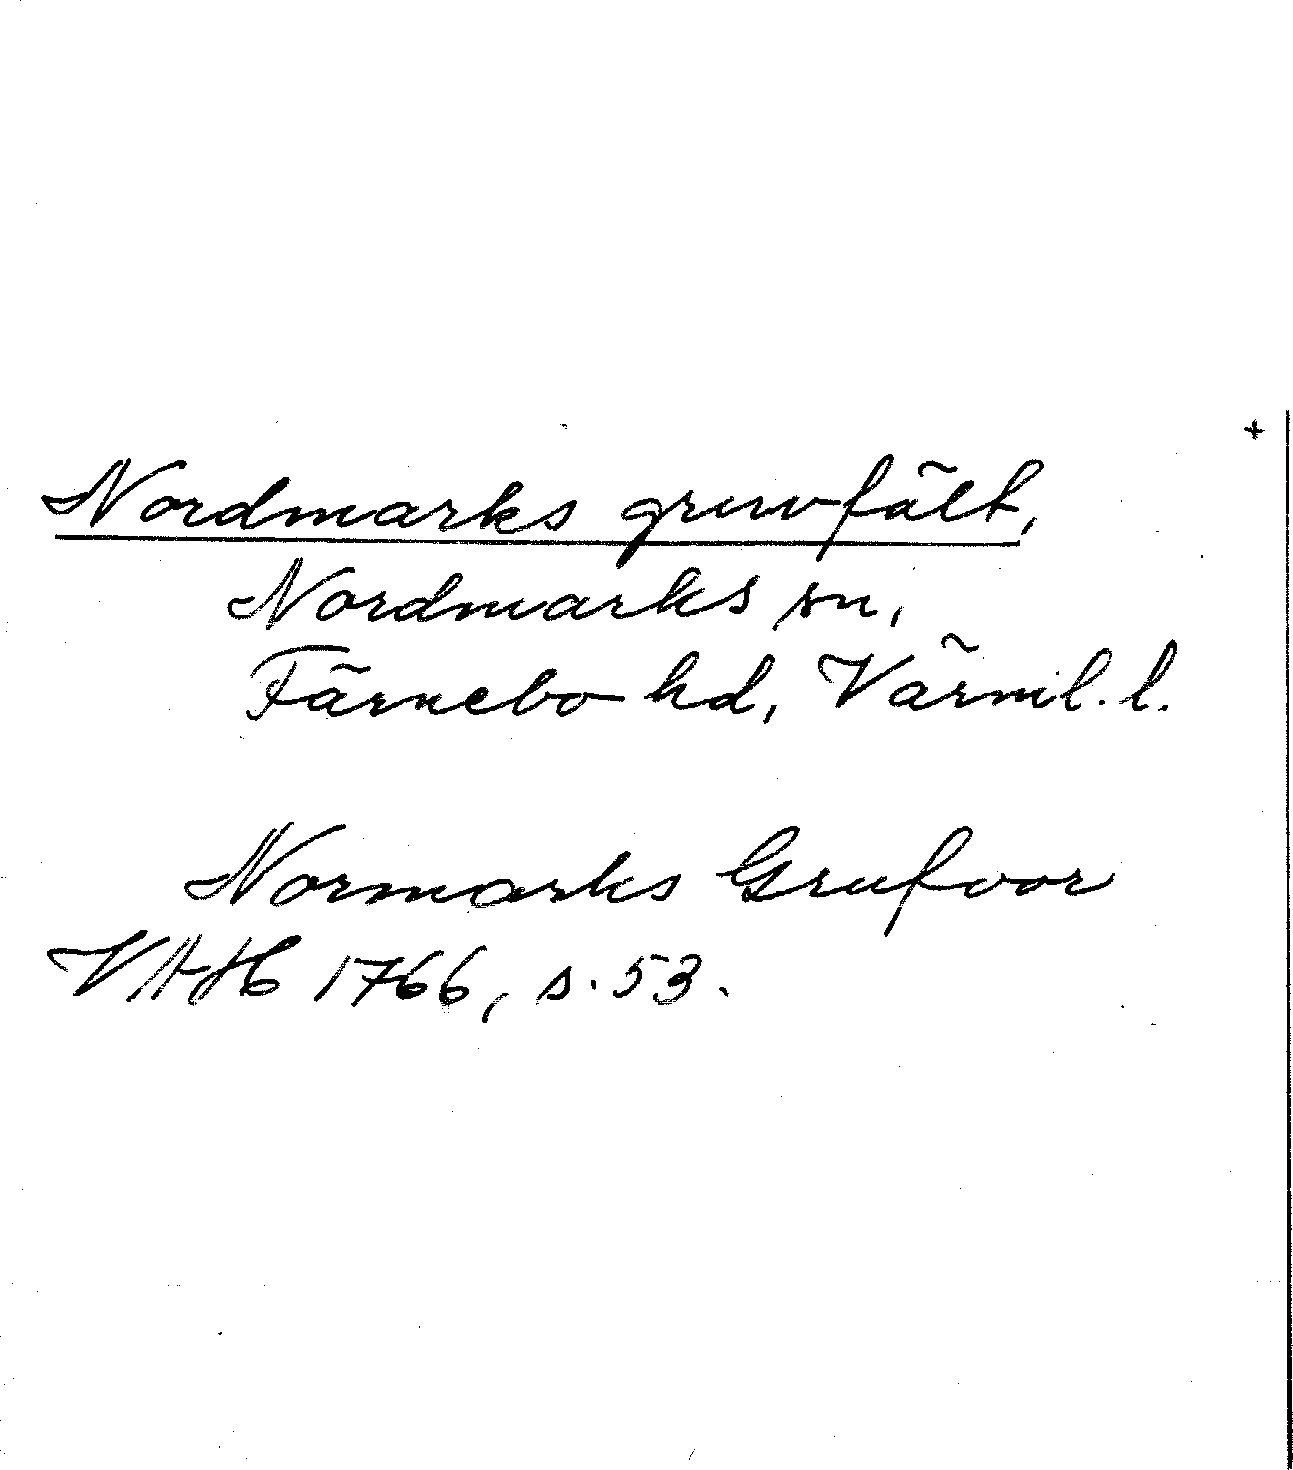 +
Nordmarks gruvfält,
Nordmarks sn,
Färnebo hd, Värml. l.
Normarks Grufvor
VAH 1766, s. 53.